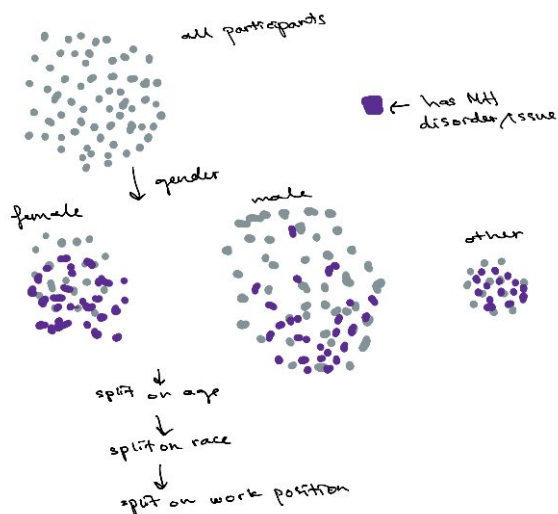 all participants
← has MH
disorder/issue
gender
female
male
other
split on age
split on race
split on work position